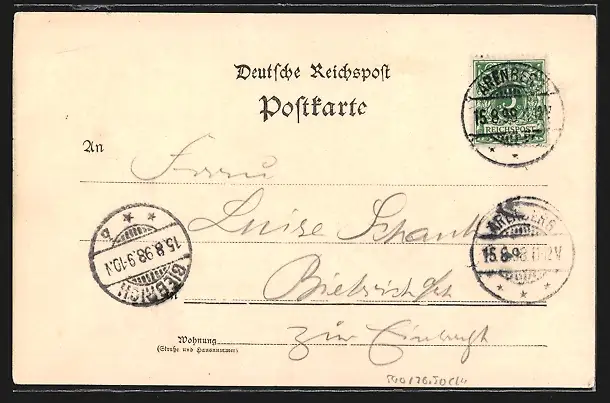 Deutsche Reichspost
Postkarte
ARENBERG
15.8.98
5
REICHSPOST
An
Frau
Luise Schank
ARENBERG
15.8.98 11-12V
BIEBRICH
15.8.98.9-10.N
b
Biebrich
in
zur
Wohnung
(Straße und Hausnummer)